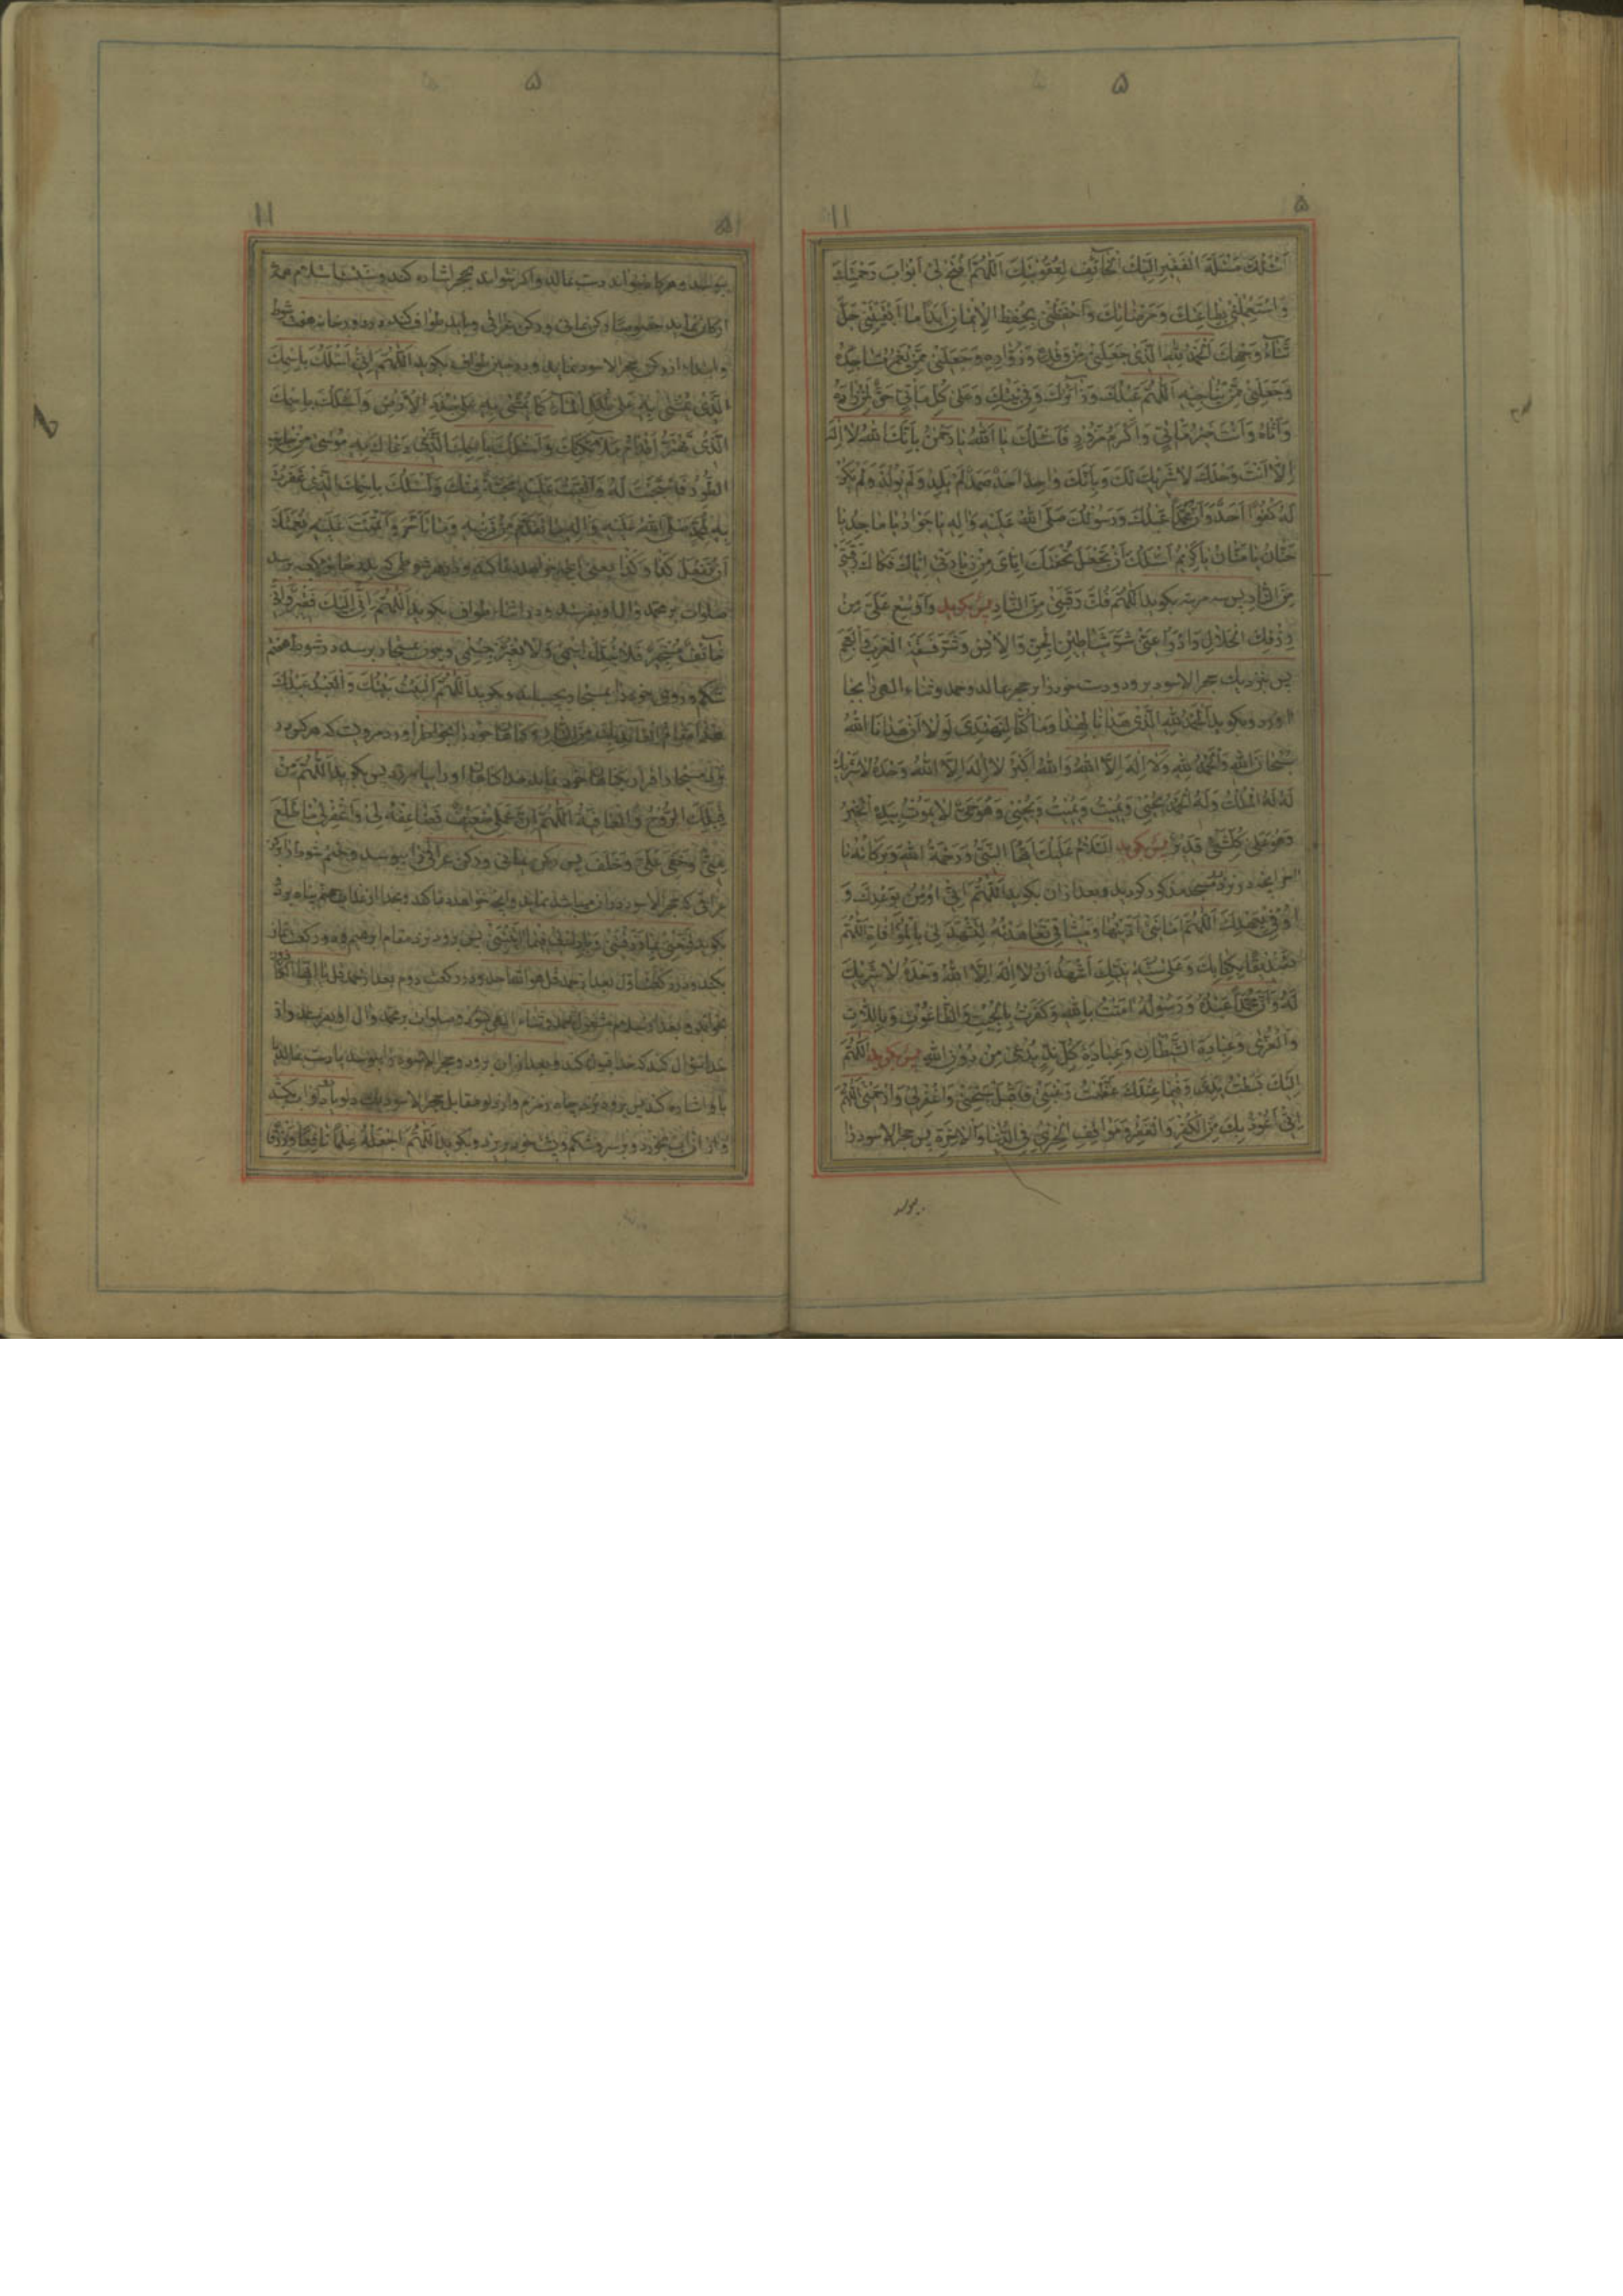 ۵
۵
۱۱
اَسْئَلُكَ مَسْئَلَةَ الْفَقيرِ اِلَيْكَ الْخآئِفِ لِعُقُوبَتِكَ اَللّهُمَّ افْتَحْ لي اَبْوابَ رَحْمَتِكَ
وَاسْتَعْمِلْني بِطاعَتِكَ وَمَرْضاتِكَ وَاحْفَظْني بِحِفْظِ الْايمانِ اَبَدًا ما اَبْقَيْتَني جَلَّ
ثَنآءُ وَجْهِكَ اَلْحَمْدُ لِلّهِ الَّذي جَعَلَني مِنْ وَفْدِهِ وَزُوّارِهِ وَجَعَلَني مِمَّنْ يَعْمُرُ مَساجِدَهُ
وَجَعَلَني مِمَّنْ يُناجيهِ اَللّهُمَّ عَبْدُكَ وَزآئِرُكَ وَفي بَيْتِكَ وَعَلى كُلِّ مَأْتِيٍّ حَقٌّ لِمَنْ زارَهُ
وَاَتاهُ وَاَنْتَ خَيْرُ مَأْتِيٍّ وَاَكْرَمُ مَزُورٍ فَاَسْئَلُكَ يا اَللّهُ يا رَحْمنُ بِاَنَّكَ اللّهُ لا اِلهَ
اِلّا اَنْتَ وَحْدَكَ لا شَريكَ لَكَ وَبِاَنَّكَ واحِدٌ اَحَدٌ صَمَدٌ لَمْ يَلِدْ وَلَمْ يُولَدْ وَلَمْ يَكُنْ
لَهُ كُفُوًا اَحَدٌ وَاَنَّ مُحَمَّدًا عَبْدُكَ وَرَسُولُكَ صَلَّى اللّهُ عَلَيْهِ وَالِهِ يا جَوادُ يا ماجِدُ يا
حَنّانُ يا مَنّانُ يا كَريمُ اَسْئَلُكَ اَنْ تَجْعَلَ تُحْفَتَكَ اِيّايَ مِنْ زِيارَتي اِيّاكَ فَكاكَ رَقَبَتي
مِنَ النّارِ پس سه مرتبه بگوید اَللّهُمَّ فُكَّ رَقَبَتي مِنَ النّارِ پس بگوید وَاَوْسِعْ عَلَيَّ مِنْ
رِزْقِكَ الْحَلالِ وَادْرَأْ عَنّي شَرَّ شَياطينِ الْجِنِّ وَالْاِنْسِ وَشَرَّ فَسَقَةِ الْعَرَبِ وَالْعَجَمِ
پس بنزدیک حجر الاسود برود ودست خود را بر حجر بمالد وحمد وثناء الهی را بجا
آورد وبگوید اَلْحَمْدُ لِلّهِ الَّذي هَدانا لِهذا وَما كُنّا لِنَهْتَدِيَ لَوْ لا اَنْ هَدانَا اللّهُ
سُبْحانَ اللّهِ وَالْحَمْدُ لِلّهِ وَلا اِلهَ اِلَّا اللّهُ وَاللّهُ اَكْبَرُ لا اِلهَ اِلَّا اللّهُ وَحْدَهُ لا شَريكَ
لَهُ لَهُ الْمُلْكُ وَلَهُ الْحَمْدُ يُحْيي وَيُميتُ وَيُميتُ وَيُحْيي وَهُوَ حَيٌّ لا يَمُوتُ بِيَدِهِ الْخَيْرُ
وَهُوَ عَلى كُلِّ شَيْءٍ قَديرٌ پس بگوید اَلسَّلامُ عَلَيْكَ اَيُّهَا النَّبِيُّ وَرَحْمَةُ اللّهِ وَبَرَكاتُهُ تا
آخر آنچه در نزد در مسجد مذکور کردید وبعد از آن بگوید اَللّهُمَّ اِنّي اُومِنُ بِوَعْدِكَ وَ
اُوفي بِعَهْدِكَ اَللّهُمَّ اَمانَتي اَدَّيْتُها وَميثاقي تَعاهَدْتُهُ لِتَشْهَدَ لي بِالْمُوافاةِ اَللّهُمَّ
تَصْديقًا بِكِتابِكَ وَعَلى سُنَّةِ نَبِيِّكَ اَشْهَدُ اَنْ لا اِلهَ اِلَّا اللّهُ وَحْدَهُ لا شَريكَ
لَهُ وَاَنَّ مُحَمَّدًا عَبْدُهُ وَرَسُولُهُ امَنْتُ بِاللّهِ وَكَفَرْتُ بِالْجِبْتِ وَالطّاغُوتِ وَبِاللّاتِ
وَالْعُزّى وَعِبادَةِ الشَّيْطانِ وَعِبادَةِ كُلِّ نِدٍّ يُدْعى مِنْ دُونِ اللّهِ پس بگوید اَللّهُمَّ
اِلَيْكَ بَسَطْتُ يَدي وَفيما عِنْدَكَ عَظُمَتْ رَغْبَتي فَاقْبَلْ سُبْحَتي وَاغْفِرْ لي وَارْحَمْني اَللّهُمَّ
اِنّي اَعُوذُ بِكَ مِنَ الْكُفْرِ وَالْفَقْرِ وَمَواقِفِ الْخِزْيِ فِي الدُّنْيا وَالْاخِرَةِ پس حجر الاسود را
ببوسد
۵
۱۱
ببوسد وهرگاه نتواند دست بمالد واگر نتواند بحجر اشاره کند وسنت است استلام همهٔ
ارکان نماید خصوصا رکن یمانی ورکن عراقی وباید طواف کند در دور خانه هفت شوط
وابتداء از رکن حجر الاسود نماید ودر حین طواف بگوید اَللّهُمَّ اِنّي اَسْئَلُكَ بِاسْمِكَ
الَّذي يُمْشى بِهِ عَلى طَلَلِ الْمآءِ كَما يُمْشى بِهِ عَلى جُدَدِ الْاَرْضِ وَاَسْئَلُكَ بِاسْمِكَ
الَّذي تَهْتَزُّ لَهُ اَقْدامُ مَلآئِكَتِكَ وَاَسْئَلُكَ بِاسْمِكَ الَّذي دَعاكَ بِهِ مُوسى مِنْ جانِبِ
الطُّورِ فَاسْتَجَبْتَ لَهُ وَاَلْقَيْتَ عَلَيْهِ مَحَبَّةً مِنْكَ وَاَسْئَلُكَ بِاسْمِكَ الَّذي غَفَرْتَ
بِهِ لِمُحَمَّدٍ صَلَّى اللّهُ عَلَيْهِ وَالِهِ ما تَقَدَّمَ مِنْ ذَنْبِهِ وَما تَاَخَّرَ وَاَتْمَمْتَ عَلَيْهِ نِعْمَتَكَ
اَنْ تَفْعَلَ كَذا وَكَذا یعنی آنچه خواهد دعا کند ودر هر شوطی که بدر خانهٔ کعبه رسد
صلوات بر محمد وال او بفرستد ودر اثناء طواف بگوید اَللّهُمَّ اِنّي اِلَيْكَ فَقيرٌ وَاِنّي
خآئِفٌ مُسْتَجيرٌ فَلا تُبَدِّلْ اسْمي وَلا تُغَيِّرْ جِسْمي وچون بمستجار برسد در شوط هفتم
شکم وروی خود را بمستجار بچسباند وبگوید اَللّهُمَّ الْبَيْتُ بَيْتُكَ وَالْعَبْدُ عَبْدُكَ
هذا مَقامُ الْعآئِذِ بِكَ مِنَ النّارِ وگناهان خود را بخواطر آورد مرویست که هر که در
نزد مستجار اقرار بگناهان خود نماید خدا گناهان او را بیامرزد پس بگوید اَللّهُمَّ مِنْ
قِبَلِكَ الرَّوْحُ وَالْعافِيَةُ اَللّهُمَّ اِنَّ عَمَلي ضَعيفٌ فَضاعِفْهُ لي وَاغْفِرْ لي مَا اطَّلَعْتَ
عَلَيْهِ مِنّي وَخَفِيَ عَلى خَلْقِكَ پس رکن یمانی ورکن عراقی را ببوسد
بگوید اللهم قَنِّعْني بِما رَزَقْتَني وَبارِكْ لي فيما اتَيْتَني پس رود نزد مقام ابرهیم ودو رکعت نماز
بکند ودر رکعت اول بعد از حمد قل هو الله احد ودر رکعت دوم بعد از حمد قل یا ایها الکافرون
بخواند وبعد از سلام مشغول بحمد وثناء الهی شود وصلوات بر محمد وال او بفرستد واز
خدا سؤال کند که خدا قبول کند وبعد از آن برود وحجر الاسود را ببوسد یا دست بمالد یا
باو اشاره کند پس برود نزد چاه زمزم واز دلو مقابل حجر الاسود یک دلو یا دو دلو آب بکشد
واز آن آب بخورد وبر سر وشکم وپشت خود بریزد وبگوید اَللّهُمَّ اجْعَلْهُ عِلْمًا نافِعًا وَرِزْقًا